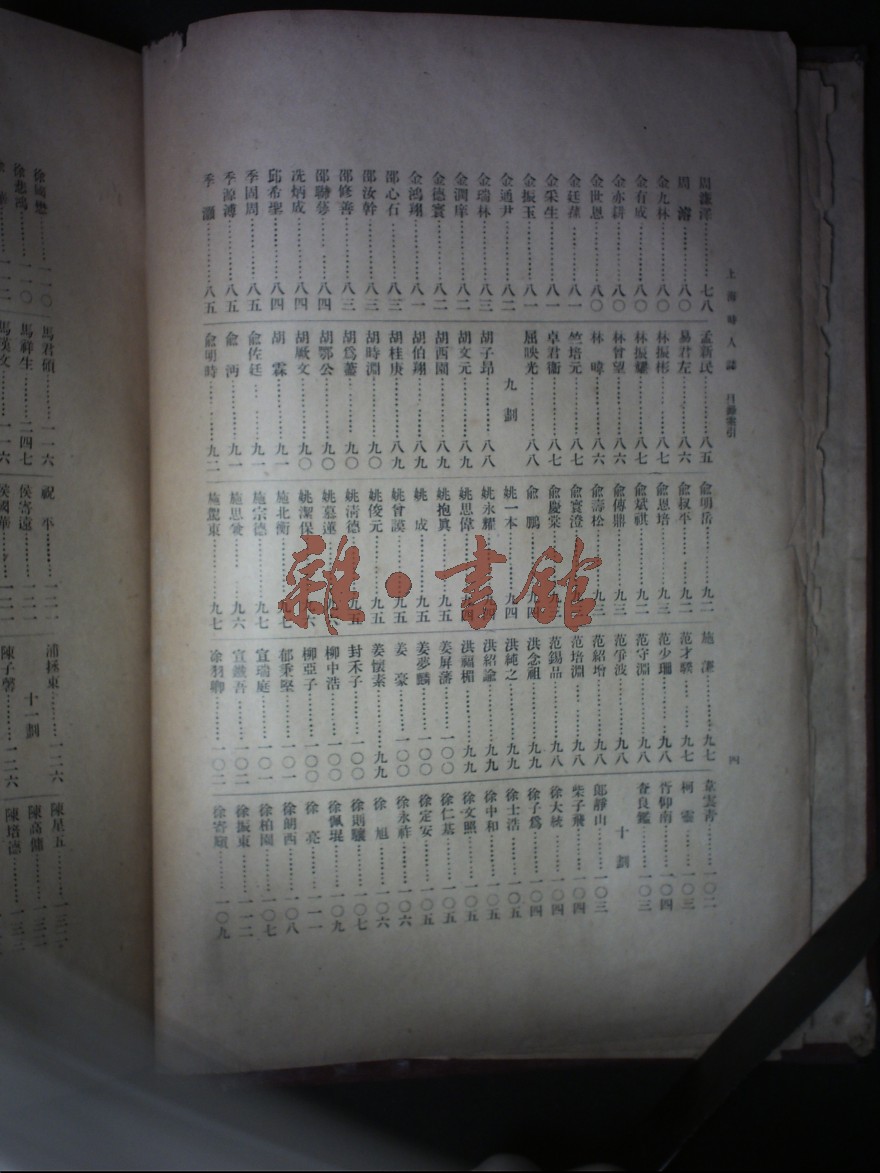 上海時人誌 目錄索引
四
周滌洋 七八
周濬 八〇
金九林 八〇
金有成 八〇
金亦耕 八〇
金世恩 八〇
金廷蓀 八一
金采生 八一
金振玉 八一
金通尹 八二
金瑞林 八二
金潤庠 八二
金德寰 八二
金鴻翔 八一
邵心石 八三
邵汝幹 八三
邵修善 八三
邵聯萼 八四
冼炳成 八四
邱希聖 八四
季固周 八五
季源溥 八五
季灝 八五
孟新民 八五
易君左 八六
林振彬 八七
林振耀 八七
林曾望 八六
林暐 八六
竺培元 八七
卓君衞 八七
屈映光 八八
九劃
胡子昂 八八
胡文元 八九
胡西園 八九
胡伯翔 八九
胡桂庚 八九
胡時淵 九〇
胡爲蕃 九〇
胡鄂公 九〇
胡厥文 九〇
胡霖 九一
俞佐廷 九一
俞沔 九一
俞明時 九二
俞明岳 九二
俞叔平 九二
俞恩培 九二
俞斌祺 九二
俞傳鼎 九三
俞壽松 九三
俞寰澄 九
俞慶棠 九
俞鵬 九四
姚一本 九四
姚永耀 九四
姚思偉 九四
姚抱眞 九五
姚成 九五
姚曾謨 九五
姚俊元 九五
姚淸德 九五
姚慕蓮
姚潔保
施北衡 九七
施宗德 九七
施思爰 九六
施駕東 九七
施濟 九七
范才騤 九七
范少珊 九八
范守淵 九八
范爭波 九八
范紹增 九八
范培淵 九八
范錫品 九八
洪念祖 九九
洪純之 九九
洪紹諭 九九
洪福楣 九九
姜屏藩 一〇〇
姜夢麟 一〇〇
姜豪 一〇〇
姜懷素 九九
封禾子 一〇〇
柳中浩 一〇〇
柳亞子 一〇〇
郁秉堅 一〇一
宣瑞庭 一〇一
宣鐵吾 一〇二
涂羽卿 一〇二
韋雲靑 一〇二
柯靈 一〇三
胥仰南 一〇四
查良鑑 一〇三
十劃
郞靜山 一〇三
柴子飛 一〇四
徐大統 一〇四
徐子爲 一〇四
徐士浩 一〇五
徐中和 一〇五
徐文照 一〇五
徐仁基 一〇五
徐定安 一〇五
徐永祚 一〇六
徐旭 一〇六
徐則驤 一〇七
徐佩琨 一〇九
徐亮 一一一
徐胡西 一〇八
徐柏園 一〇七
徐振東 一一二
徐寄廎 一〇九
徐國懋 一一〇
徐悲鴻 一一〇
馬君碩 一一六
馬祥生 二四七
馬漢文 一一六
祝平 一二一
侯寄遠 一二一
侯國華 一二一
浦拯東 一二六
十一劃
陳子馨 一二六
陳星五 一三
陳高傭 一三三
陳培德 一三三
雜·書館